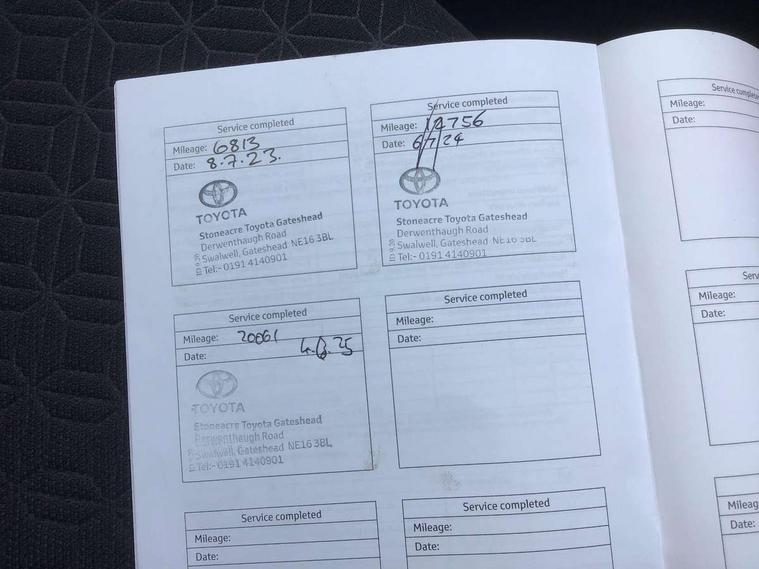 Service completed
Mileage: 6813
Date: 8.7.23.
TOYOTA
Stoneacre Toyota Gateshead
Derwenthaugh Road
Swalwell, Gateshead NE16 3BL
Tel:- 0191 4140901
Service completed
Mileage: 14756
Date: 6/7/24
TOYOTA
Stoneacre Toyota Gateshead
Derwenthaugh Road
Swalwell, Gateshead NE16 3BL
Tel:- 0191 4140901
Service completed
Mileage: 20061
Date:
TOYOTA
Stoneacre Toyota Gateshead
Derwenthaugh Road
Swalwell, Gateshead NE16 3BL
Tel:- 0191 4140901
Service completed
Mileage:
Date:
Service completed
Mileage:
Date:
Service completed
Mileage:
Date:
Service complete
Mileage:
Date:
Serv
Mileage:
Date:
Mileag
Date: